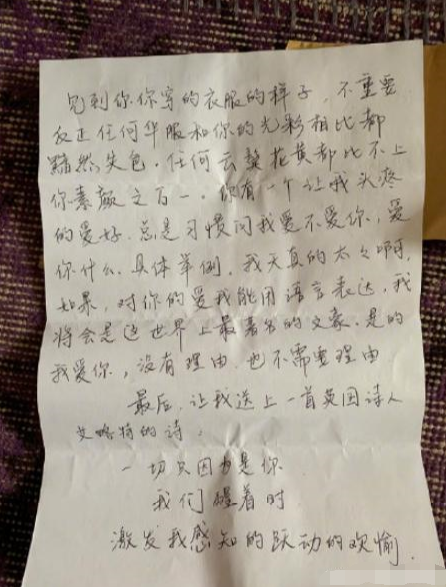 见到你你穿的衣服的样子，不重要
反正任何华服和你的光彩相比都
黯然失色。任何云鬓花黄都比不上
你素颜之万一。你有一个让我头疼
的爱好，总是习惯问我爱不爱你，爱
你什么，具体举例，我天真的太太啊，
如果，对你的爱我能用语言表达，我
将会是这世界上最著名的文豪，是的
我爱你，没有理由，也不需要理由
最后，让我送上一首英国诗人
艾略特的诗。
一切只因为是你
我们碰着时
激发我感知的跃动的欢愉.